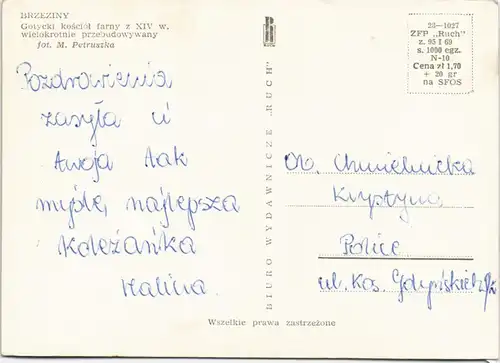 BRZEZINY
Gotycki kościół farny z XIV w.
wielokrotnie przebudowywany
fot. M. Petruszka
Pozdrowienia
zasyła ci
twoja tak
myślę, najlepsza
Koleżanka
Halina.
BIURO WYDAWNICZE „RUCH"
28—1027
ZFP „Ruch"
z. 95 I 69
s. 1000 egz.
N-10
Cena zł 1,70
+ 20 gr
na SFOS
Ob. Chmielnicka
Krystyna
Police
ul. Kos. Gdyńskich
Wszelkie prawa zastrzeżone